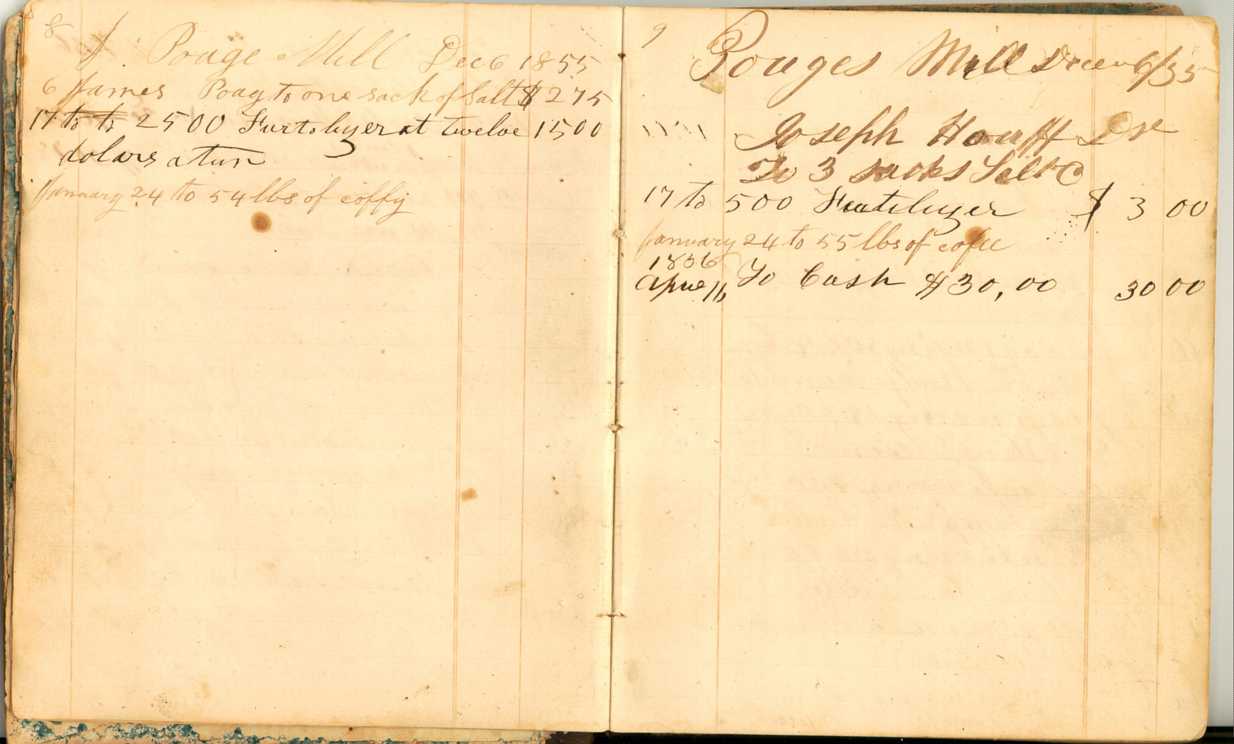 8
J. Pouge Mill Dec 6 1855
6 James Poag to one sack of Salt $ 2 75
17 to to 2500 Furtolyzer at twelve 15 00
dolars a tun
January 24 to 54 lbs of coffy
9
Pouges Mill Decem 6/55
Joseph Houff Dr
To 3 sacks Salt
17 to 500 Furtilyzer $ 3 00
January 24 to 55 lbs of cofee
1856
Aprue 16 To Cash $30,00 30 00